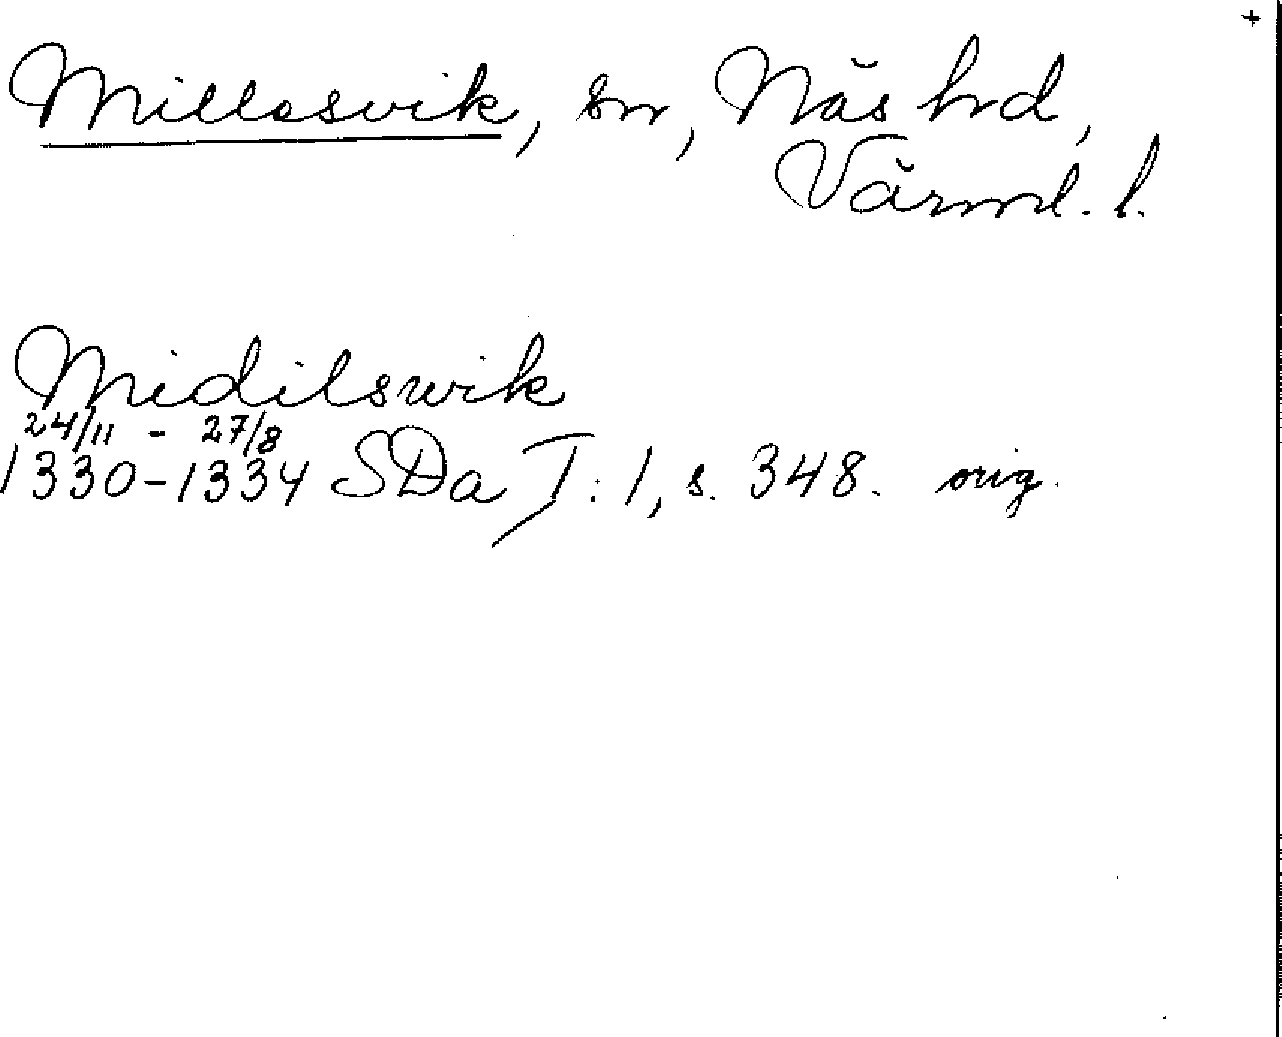 +
Millesvik, sn, Näs hd,
Värml. l.
Midilswik
24/11 - 27/8
1330-1334 SDa I:1, s. 348. orig.